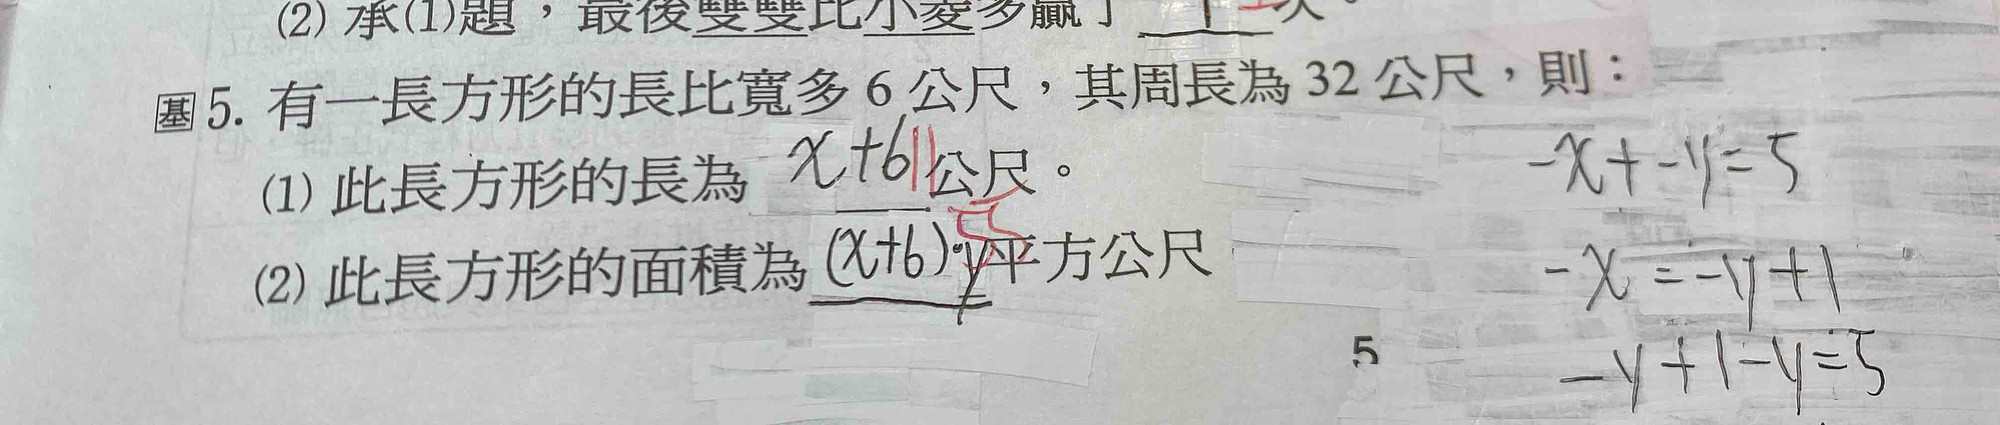 (2) 承(1)題，最後雙雙比小菱多贏了 1 次。
基 5. 有一長方形的長比寬多 6 公尺，其周長為 32 公尺，則：
(1) 此長方形的長為 x+6 11 公尺。
(2) 此長方形的面積為 (x+6)·y 平方公尺
-x+-y=5
-x=-y+1
-y+1-y=5
5